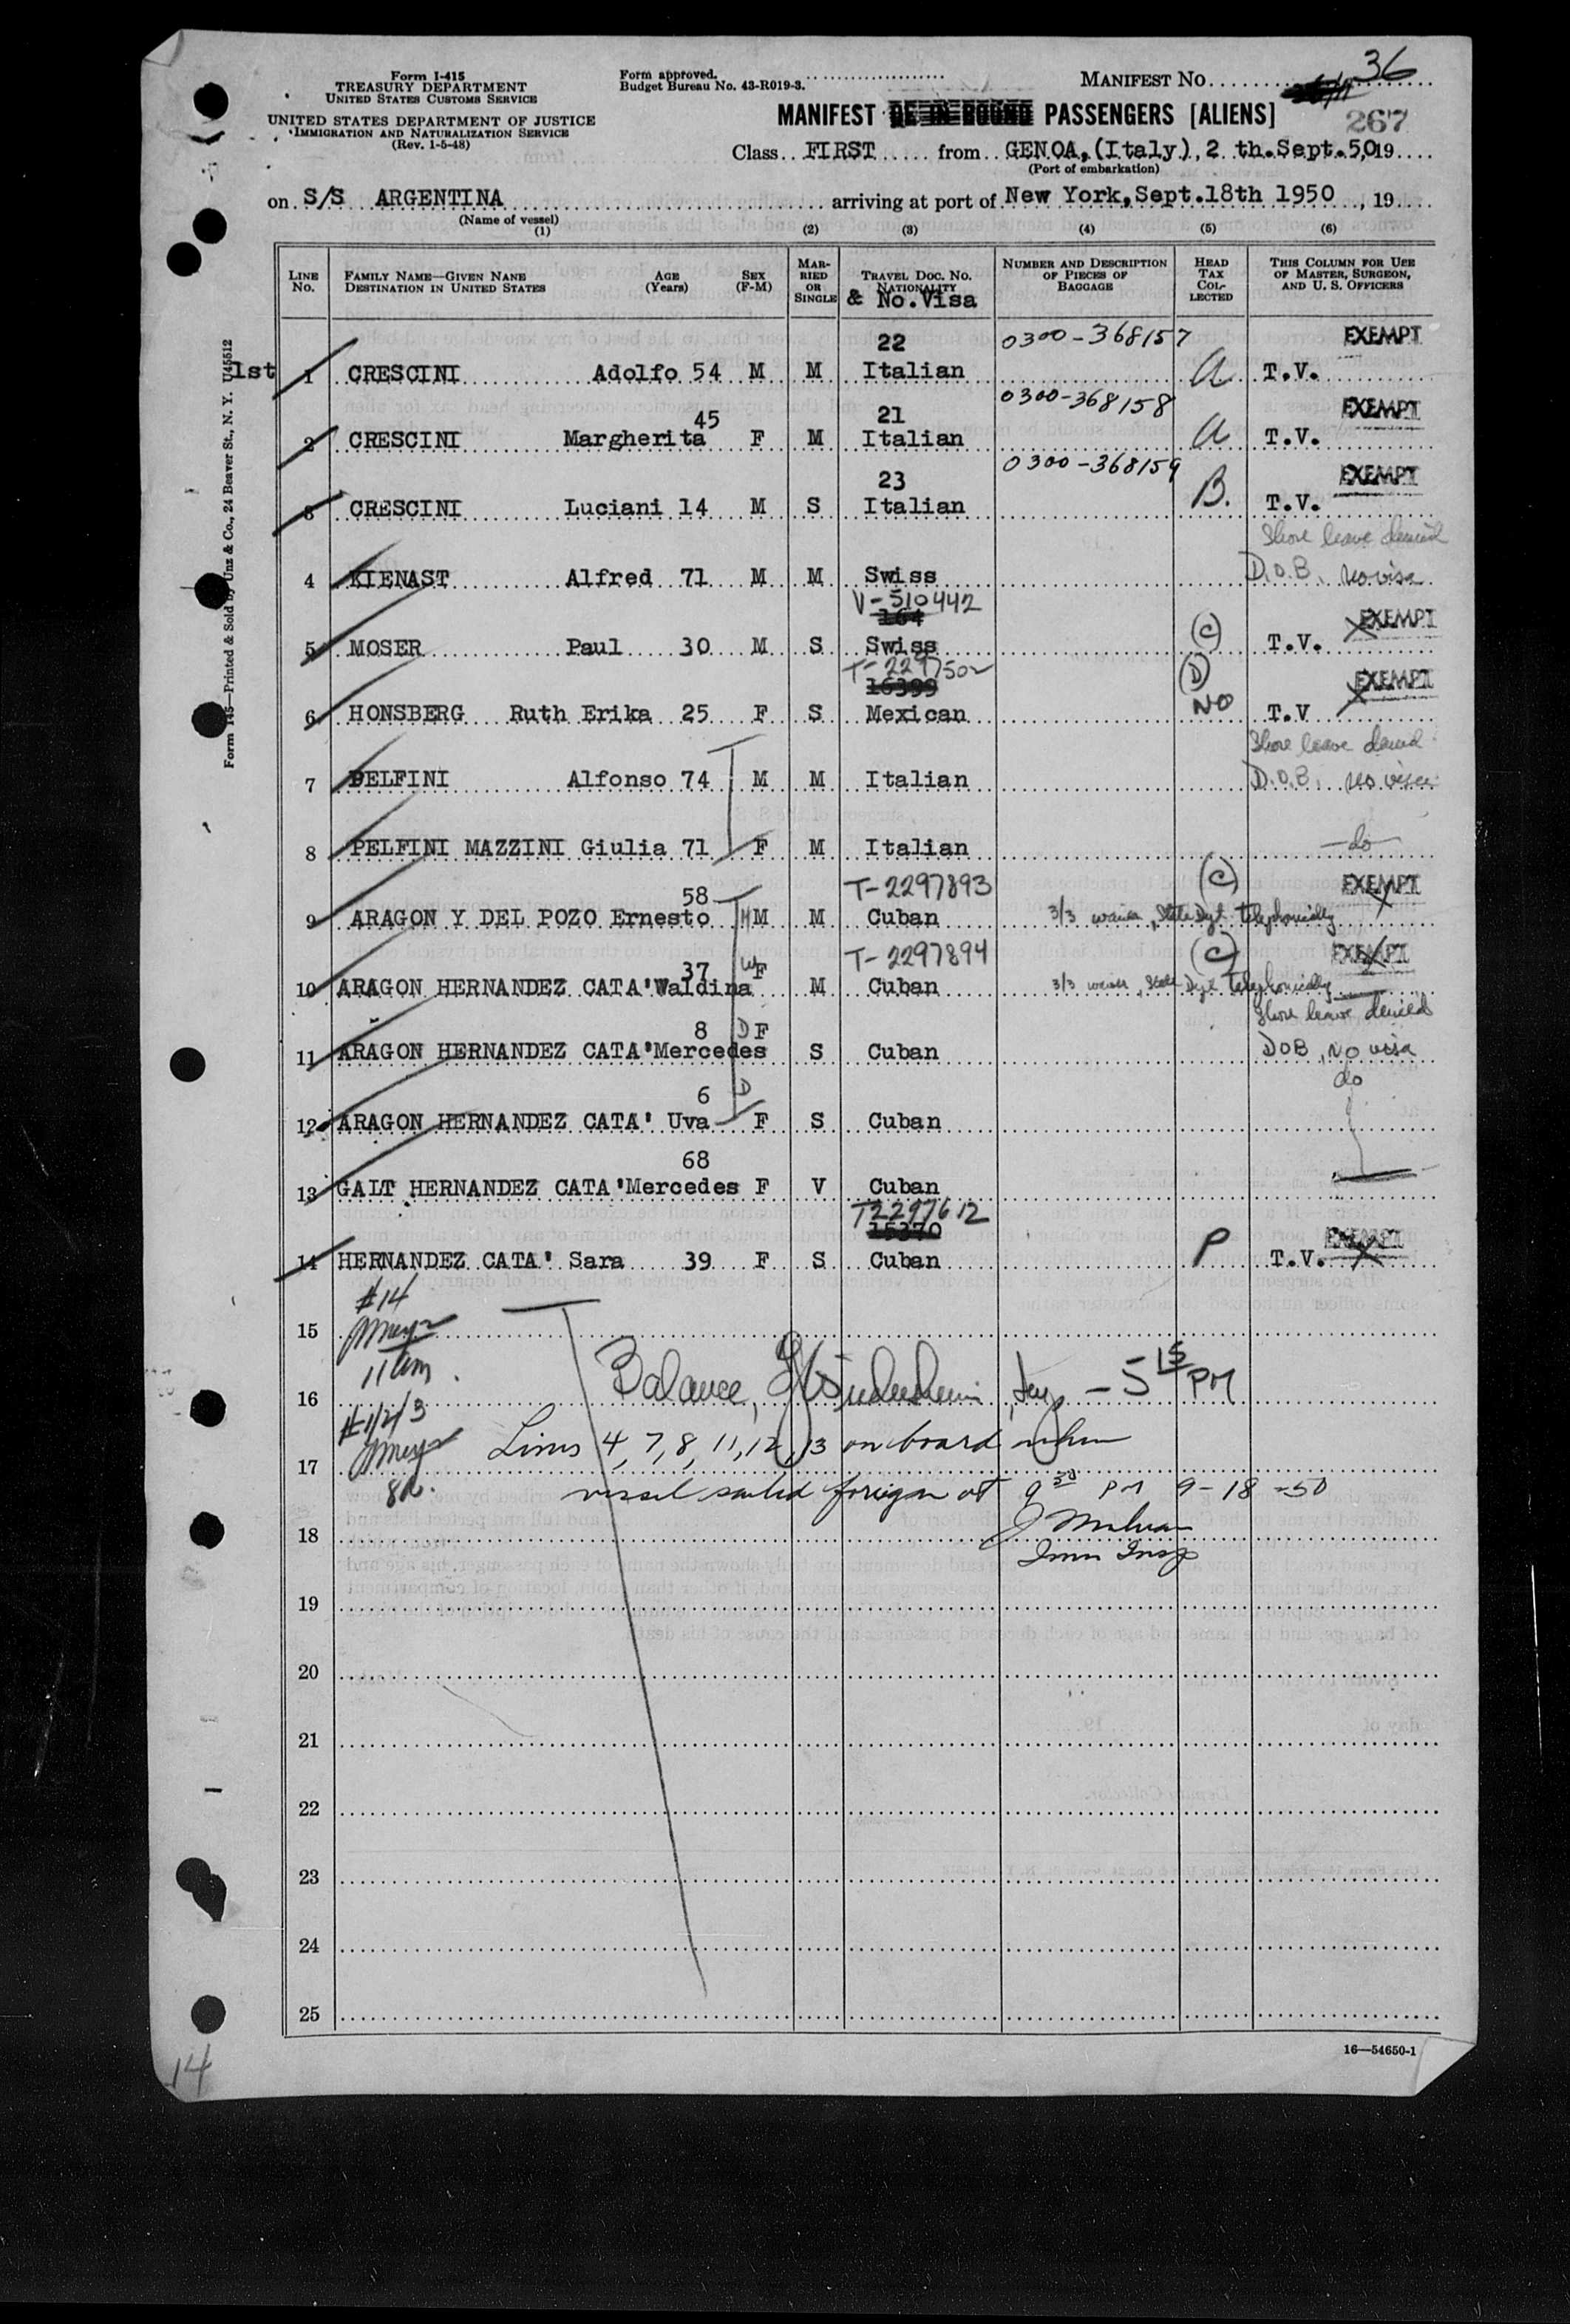 Form I-415
TREASURY DEPARTMENT
UNITED STATES CUSTOMS SERVICE
UNITED STATES DEPARTMENT OF JUSTICE
IMMIGRATION AND NATURALIZATION SERVICE
(Rev. 1-5-48)
Form approved.
Budget Bureau No. 43-R019-3.
MANIFEST NO. 36
267
MANIFEST PASSENGERS [ALIENS]
Class FIRST from GENOA, (Italy), 2 th. Sept. 50, 19
(Port of embarkation)
on S/S ARGENTINA arriving at port of New York, Sept. 18th 1950, 19
(Name of vessel)
(1) (2) (3) (4) (5) (6)
LINE NO. FAMILY NAME—GIVEN NAME DESTINATION IN UNITED STATES AGE (Years) SEX (F-M) MARRIED OR SINGLE TRAVEL DOC. NO. NATIONALITY & No. Visa NUMBER AND DESCRIPTION OF PIECES OF BAGGAGE HEAD TAX COLLECTED THIS COLUMN FOR USE OF MASTER, SURGEON, AND U. S. OFFICERS
22 0300-368157 EXEMPT
1st 1 CRESCINI Adolfo 54 M M Italian A T.V.
45 21 0300-368158 EXEMPT
2 CRESCINI Margherita F M Italian A T.V.
23 0300-368159 EXEMPT
3 CRESCINI Luciani 14 M S Italian B. T.V.
Shore leave denied
4 KIENAST Alfred 71 M M Swiss D.O.B. no visa
V-510442
164 EXEMPT
5 MOSER Paul 30 M S Swiss (C) T.V.
T-2297502
16399 (D) EXEMPT
6 HONSBERG Ruth Erika 25 F S Mexican NO T.V
Shore leave denied
7 PELFINI Alfonso 74 M M Italian D.O.B. no visa
8 PELFINI MAZZINI Giulia 71 F M Italian —do—
58 T-2297893 (C) EXEMPT
9 ARAGON Y DEL POZO Ernesto H M M Cuban 3/3 waiver, State Dept telephonically
37 W T-2297894 (C) EXEMPT
10 ARAGON HERNANDEZ CATA' Waldina F M Cuban 3/3 waiver, State Dept telephonically
Shore leave denied
8 D
11 ARAGON HERNANDEZ CATA' Mercedes F S Cuban DOB, no visa
6 D do
12 ARAGON HERNANDEZ CATA' Uva F S Cuban
68
13 GALT HERNANDEZ CATA' Mercedes F V Cuban
T2297612
15370 EXEMPT
14 HERNANDEZ CATA' Sara 39 F S Cuban P T.V.
#14
15
11am.
16 Balance, - 5 15 PM
#1/2/3
Lines 4, 7, 8, 11, 12, 13 on board when
17
8a.
vessel sailed foreign at 9 PM 9-18-50
18
Imm Insp
19
20
21
22
23
24
25
16—54650-1
14
Form 145—Printed & Sold by Unz & Co., 24 Beaver St., N. Y. U45512